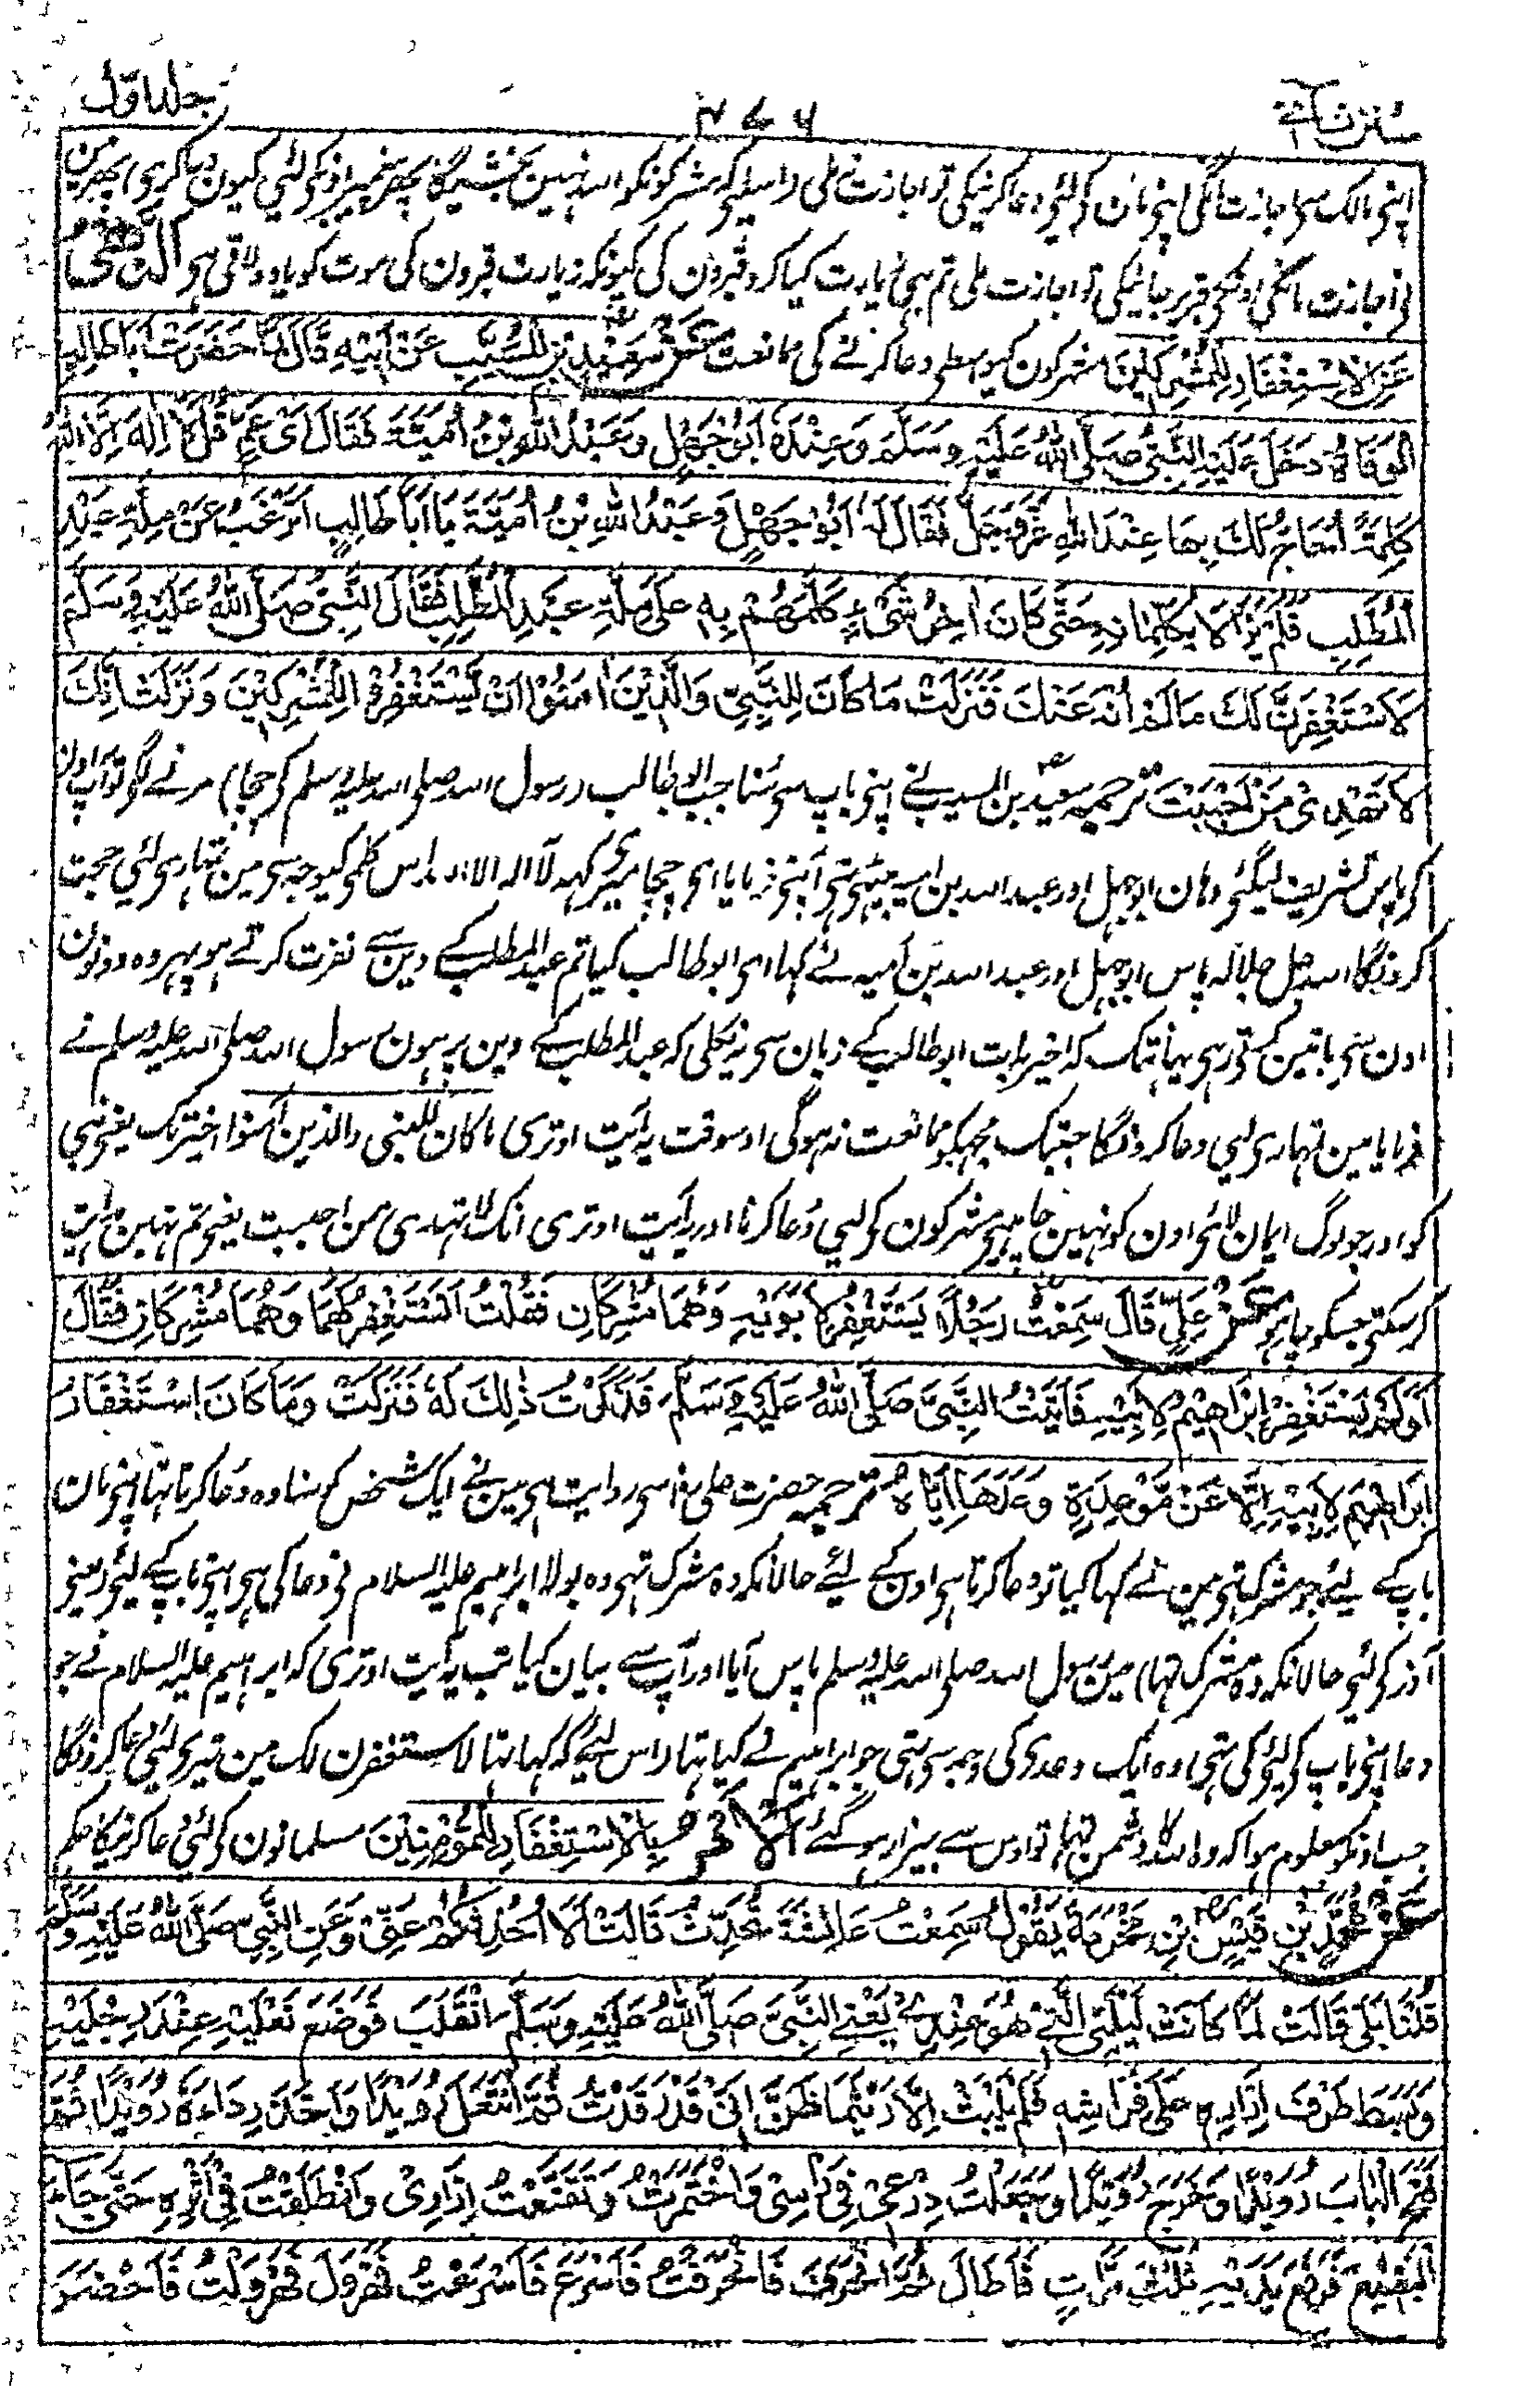 سنن نسائی ۷۷۶ جلد اول
اپنی مالک سی اجازت مانگی اپنی مان کی لئی دعا کرنیکی تو اجازت نملی واسطی کہ مشرکونکو اللہ نہین بخشیگا پھر پیغمبر اونکی لئی کیون دعا کری اور پھر مین
نی اجازت مانگی اونکی قبر پر جانیکی تو اجازت ملی تم بہی زیارت کیا کرو قبرون کی کیونکہ زیارت قبرون کی موت کو یاد دلاتی ہی النَّهْيُ
عَنِ الْاِسْتِغْفَارِ لِلْمُشْرِكِيْنَ مشرکون کیواسطی دعا کرنے کی ممانعت عَنْ سَعِيْدِ بْنِ الْمُسَيَّبِ عَنْ اَبِيْهِ قَالَ لَمَّا حَضَرَتْ اَبَا طَالِبٍ
الْوَفَاةُ دَخَلَ عَلَيْهِ النَّبِيُّ صَلَّى اللهُ عَلَيْهِ وَسَلَّمَ وَعِنْدَهُ اَبُوْ جَهْلٍ وَعَبْدُ اللهِ بْنُ اُمَيَّةَ فَقَالَ اَىْ عَمِّ قُلْ لَا اِلٰهَ اِلَّا اللهُ
كَلِمَةً اُحَاجُّ لَكَ بِهَا عِنْدَ اللهِ عَزَّ وَجَلَّ فَقَالَ لَهُ اَبُوْ جَهْلٍ وَعَبْدُ اللهِ بْنُ اُمَيَّةَ يَا اَبَا طَالِبٍ اَتَرْغَبُ عَنْ مِلَّةِ عَبْدِ
الْمُطَّلِبِ فَلَمْ يَزَالَا يُكَلِّمَانِهِ حَتّٰى كَانَ اٰخِرُ شَيْءٍ كَلَّمَهُمْ بِهِ عَلٰى مِلَّةِ عَبْدِ الْمُطَّلِبِ فَقَالَ النَّبِيُّ صَلَّى اللهُ عَلَيْهِ وَسَلَّمَ
لَاَسْتَغْفِرَنَّ لَكَ مَا لَمْ اُنْهَ عَنْكَ فَنَزَلَتْ مَا كَانَ لِلنَّبِيِّ وَالَّذِيْنَ اٰمَنُوْا اَنْ يَسْتَغْفِرُوْا لِلْمُشْرِكِيْنَ وَنَزَلَتْ اِنَّكَ
لَا تَهْدِىْ مَنْ اَحْبَبْتَ ترجمہ سعید بن المسیب نے اپنی باپ سی سُنا جب ابو طالب (رسول اللہ صلی اللہ علیہ وسلم کی چچا) مرنے لگی تو آپ اون
کی پاس تشریف لیگئی وہان ابو جہل اور عبد اللہ بن امیہ بیٹھی تہی آپنی فرمایا ای چچا میری کہہ لا الہ الا اللہ اس کلمی کیوجہ سی مین تمہاری لئی حجت
کرونگا اللہ جل جلالہ پاس ابو جہل اور عبد اللہ بن اُمیہ نے کہا ای ابو طالب کیا تم عبد المطلب کے دین سے نفرت کرتے ہو پہر وہ دونون
اون سی باتین کرتی رہی یہانتک کہ اخیر بات ابو طالب کے زبان سی یہ نکلی کہ عبد المطلب کے دین پر ہون رسول اللہ صلی اللہ علیہ وسلم نے
فرمایا مین تمہاری لیی دعا کرونگا جبتک مجہکو ممانعت نہ ہوگی اوسوقت یہ آیت اوتری ما کان للنبی والذین آمنوا اخیر تک یعنی نبی
کو اور جو لوگ ایمان لائی اون کو نہین چاہیی مشرکون کی لیی دُعا کرنا اور یہ آیت اوتری انک لا تہدی من احببت یعنی تم نہین ہدایت
کر سکتی جسکو چاہو عَنْ عَلِيٍّ قَالَ سَمِعْتُ رَجُلًا يَسْتَغْفِرُ لِاَبَوَيْهِ وَهُمَا مُشْرِكَانِ فَقُلْتُ اَتَسْتَغْفِرُ لَهُمَا وَهُمَا مُشْرِكَانِ فَقَالَ
اَوَلَمْ يَسْتَغْفِرْ اِبْرَاهِيْمُ لِاَبِيْهِ فَاَتَيْتُ النَّبِيَّ صَلَّى اللهُ عَلَيْهِ وَسَلَّمَ فَذَكَرْتُ ذٰلِكَ لَهُ فَنَزَلَتْ وَمَا كَانَ اسْتِغْفَارُ
اِبْرَاهِيْمَ لِاَبِيْهِ اِلَّا عَنْ مَّوْعِدَةٍ وَعَدَهَا اِيَّاهُ ترجمہ حضرت علی رضہ سی روایت ہی مین نے ایک شخص کو سنا وہ دعا کرتا تہا اپنی مان
باپ کے لیئے جو مشرک تہی مین نے کہا کیا تو دعا کرتا ہی اون کے لئے حالانکہ وہ مشرک تہی وہ بولا ابراہیم علیہ السلام نی دعا کی ہی اپنی باپ کے لیئی (یعنی
آذر کی لئی حالانکہ وہ مشرک تہا) مین رسول اللہ صلی اللہ علیہ وسلم پاس آیا اور آپ سے بیان کیا تب یہ آیت اوتری کہ ابراہیم علیہ السلام نے جو
دعا اپنی باپ کی لیئی کی تہی وہ ایک وعدی کی وجہ سی تہی جو ابراہیم نے کیا تہا (اس لیئی کہ کہا تہا لاستغفرن لک مین تیری لئی دعا کرونگا
جب اونکو معلوم ہوا کہ وہ اللہ کا دشمن تہا تو اوس سے بیزار ہوگئے اَلْاَمْرُ بِالْاِسْتِغْفَارِ لِلْمُؤْمِنِيْنَ مسلمانون کی لئی دعا کرنیکا حکم
عَنْ مُحَمَّدِ بْنِ قَيْسِ بْنِ مَخْرَمَةَ يَقُوْلُ سَمِعْتُ عَائِشَةَ تُحَدِّثُ قَالَتْ اَلَا اُحَدِّثُكُمْ عَنِّىْ وَعَنِ النَّبِيِّ صَلَّى اللهُ عَلَيْهِ وَسَلَّمَ
قُلْنَا بَلٰى قَالَتْ لَمَّا كَانَتْ لَيْلَتِى الَّتِىْ هُوَ عِنْدِىْ يَعْنِى النَّبِيَّ صَلَّى اللهُ عَلَيْهِ وَسَلَّمَ انْقَلَبَ فَوَضَعَ نَعْلَيْهِ عِنْدَ رِجْلَيْهِ
وَبَسَطَ طَرَفَ اِزَارِهِ عَلٰى فِرَاشِهِ فَلَمْ يَلْبَثْ اِلَّا رَيْثَمَا ظَنَّ اَنِّىْ قَدْ رَقَدْتُّ ثُمَّ انْتَعَلَ رُوَيْدًا وَاَخَذَ رِدَاءَهُ رُوَيْدًا ثُمَّ
فَتَحَ الْبَابَ رُوَيْدًا وَخَرَجَ رُوَيْدًا وَجَعَلْتُ دِرْعِىْ فِىْ رَاْسِىْ وَاخْتَمَرْتُ وَتَقَنَّعْتُ اِزَارِىْ وَانْطَلَقْتُ فِىْ اَثَرِهِ حَتّٰى جَاءَ
الْبَقِيْعَ فَرَفَعَ يَدَيْهِ ثَلٰثَ مَرَّاتٍ فَاَطَالَ ثُمَّ انْحَرَفَ فَانْحَرَفْتُ فَاَسْرَعَ فَاَسْرَعْتُ فَهَرْوَلَ فَهَرْوَلْتُ فَاَحْضَرَ